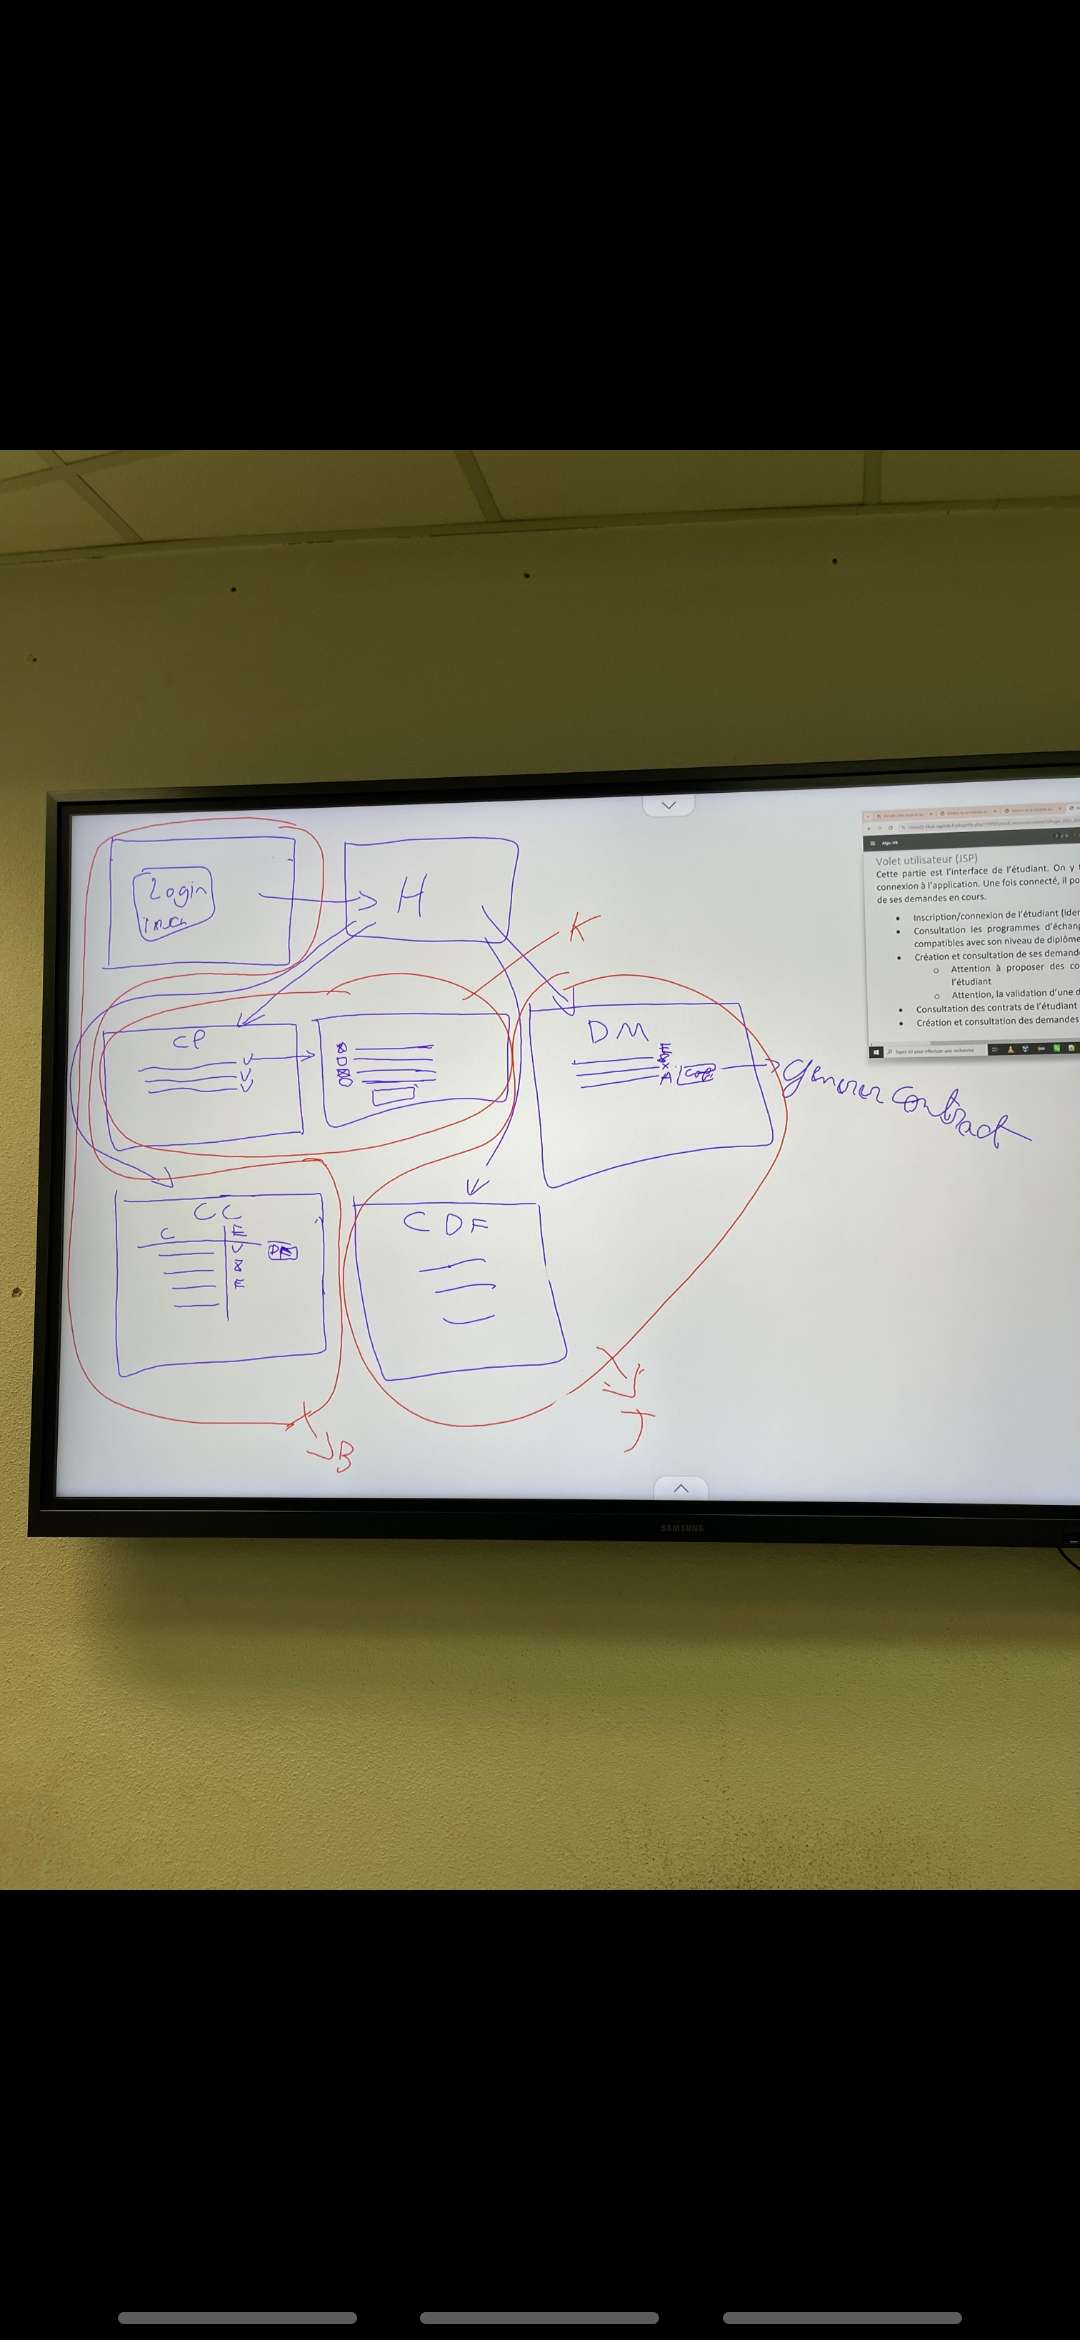 Login
H
K
CP
DM
generer contract
CC
C
E
CDF
B
J
Volet utilisateur (JSP)
Cette partie est l'interface de l'étudiant. On y
connexion à l'application. Une fois connecté, il
de ses demandes en cours.
Inscription/connexion de l'étudiant
Consultation les programmes
compatibles avec son niveau de
Création et consultation de ses
Attention à proposer des
l'étudiant
Attention, la validation d'une
Consultation des contrats de l'étudiant
Création et consultation des demandes
SAMSUNG